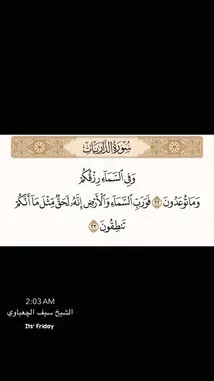 سُورَةُ الذَّارِيَاتِ
وَفِي السَّمَاءِ رِزْقُكُمْ
وَمَا تُوعَدُونَ ٢٢ فَوَرَبِّ السَّمَاءِ وَالْأَرْضِ إِنَّهُ لَحَقٌّ مِثْلَ مَا أَنَّكُمْ
تَنْطِقُونَ ٢٣
2:03 AM
الشيخ سيف الچعباوي
Its' Friday